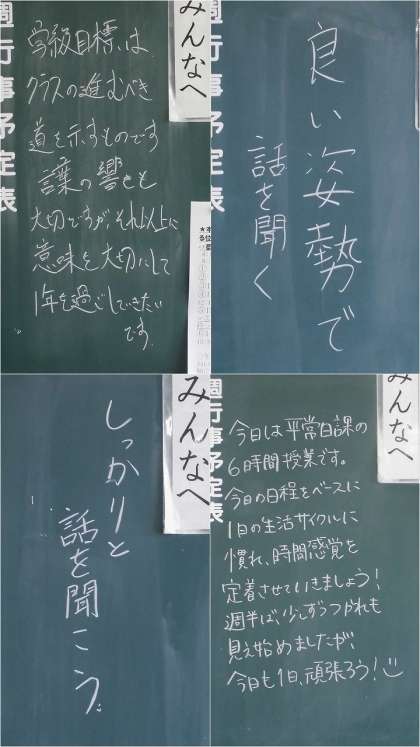 みんなへ
週行事予定表
学級目標は
クラスの進むべき
道を示すものです
言葉の響きも
大切ですが、それ以上に
意味を大切にして
1年を過ごしていきたい
です。
週行事予定表
良い姿勢で
話を聞く
みんなへ
週行事予定表
しっかりと
話を聞こう。
みんなへ
週行事予定表
今日は平常日課の
6時間授業です。
今日の日程をベースに
1日の生活サイクルに
慣れ、時間感覚を
定着させていきましょう!
週半ば、少しずつつかれも
見え始めましたが、
今日も1日、頑張ろう!